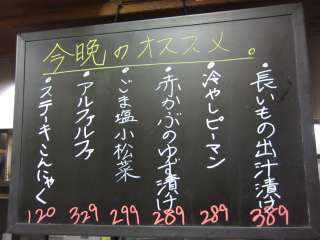 今晩のオススメ。
・長いもの出汁漬け 389
・冷やしピーマン 289
・赤かぶのゆず漬け 289
・ごま塩小松菜 299
・アルファルファ 329
・ステーキこんにゃく 120